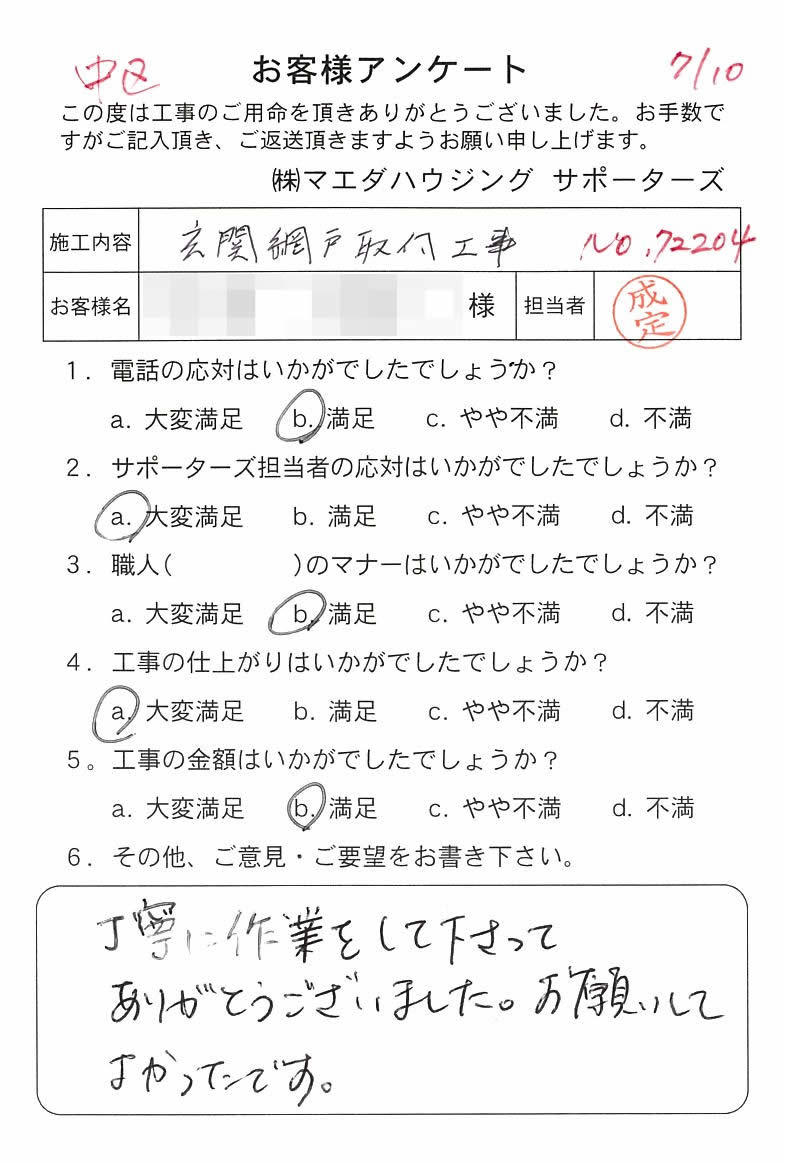 中区 お客様アンケート 7/10
この度は工事のご用命を頂きありがとうございました。お手数で
すがご記入頂き、ご返送頂きますようお願い申し上げます。
㈱マエダハウジング サポーターズ
施工内容 玄関網戸取付工事 No.72204
お客様名 様 担当者 成定
1. 電話の応対はいかがでしたでしょうか？
a. 大変満足 b. 満足 c. やや不満 d. 不満
2. サポーターズ担当者の応対はいかがでしたでしょうか？
a. 大変満足 b. 満足 c. やや不満 d. 不満
3. 職人( )のマナーはいかがでしたでしょうか？
a. 大変満足 b. 満足 c. やや不満 d. 不満
4. 工事の仕上がりはいかがでしたでしょうか？
a. 大変満足 b. 満足 c. やや不満 d. 不満
5。工事の金額はいかがでしたでしょうか？
a. 大変満足 b. 満足 c. やや不満 d. 不満
6. その他、ご意見・ご要望をお書き下さい。
丁寧に作業をして下さって
ありがとうございました。お願いして
よかったです。